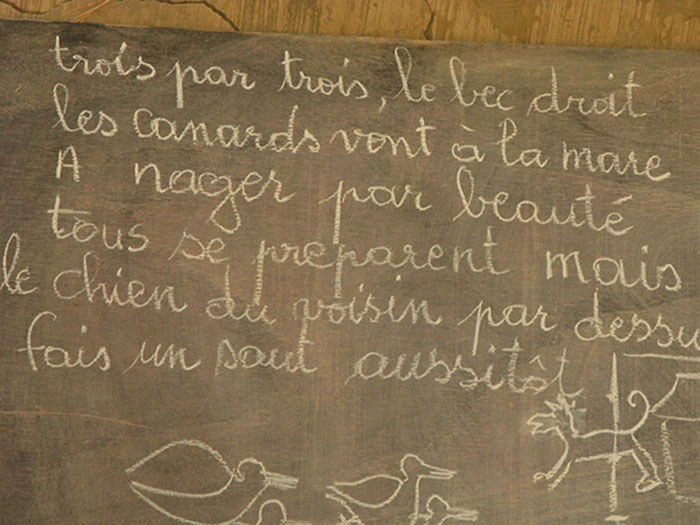 trois par trois, le bec droit
les canards vont à la mare
A nager par beauté
tous se preparent mais
le chien du voisin par dessu
fais un saut aussitôt